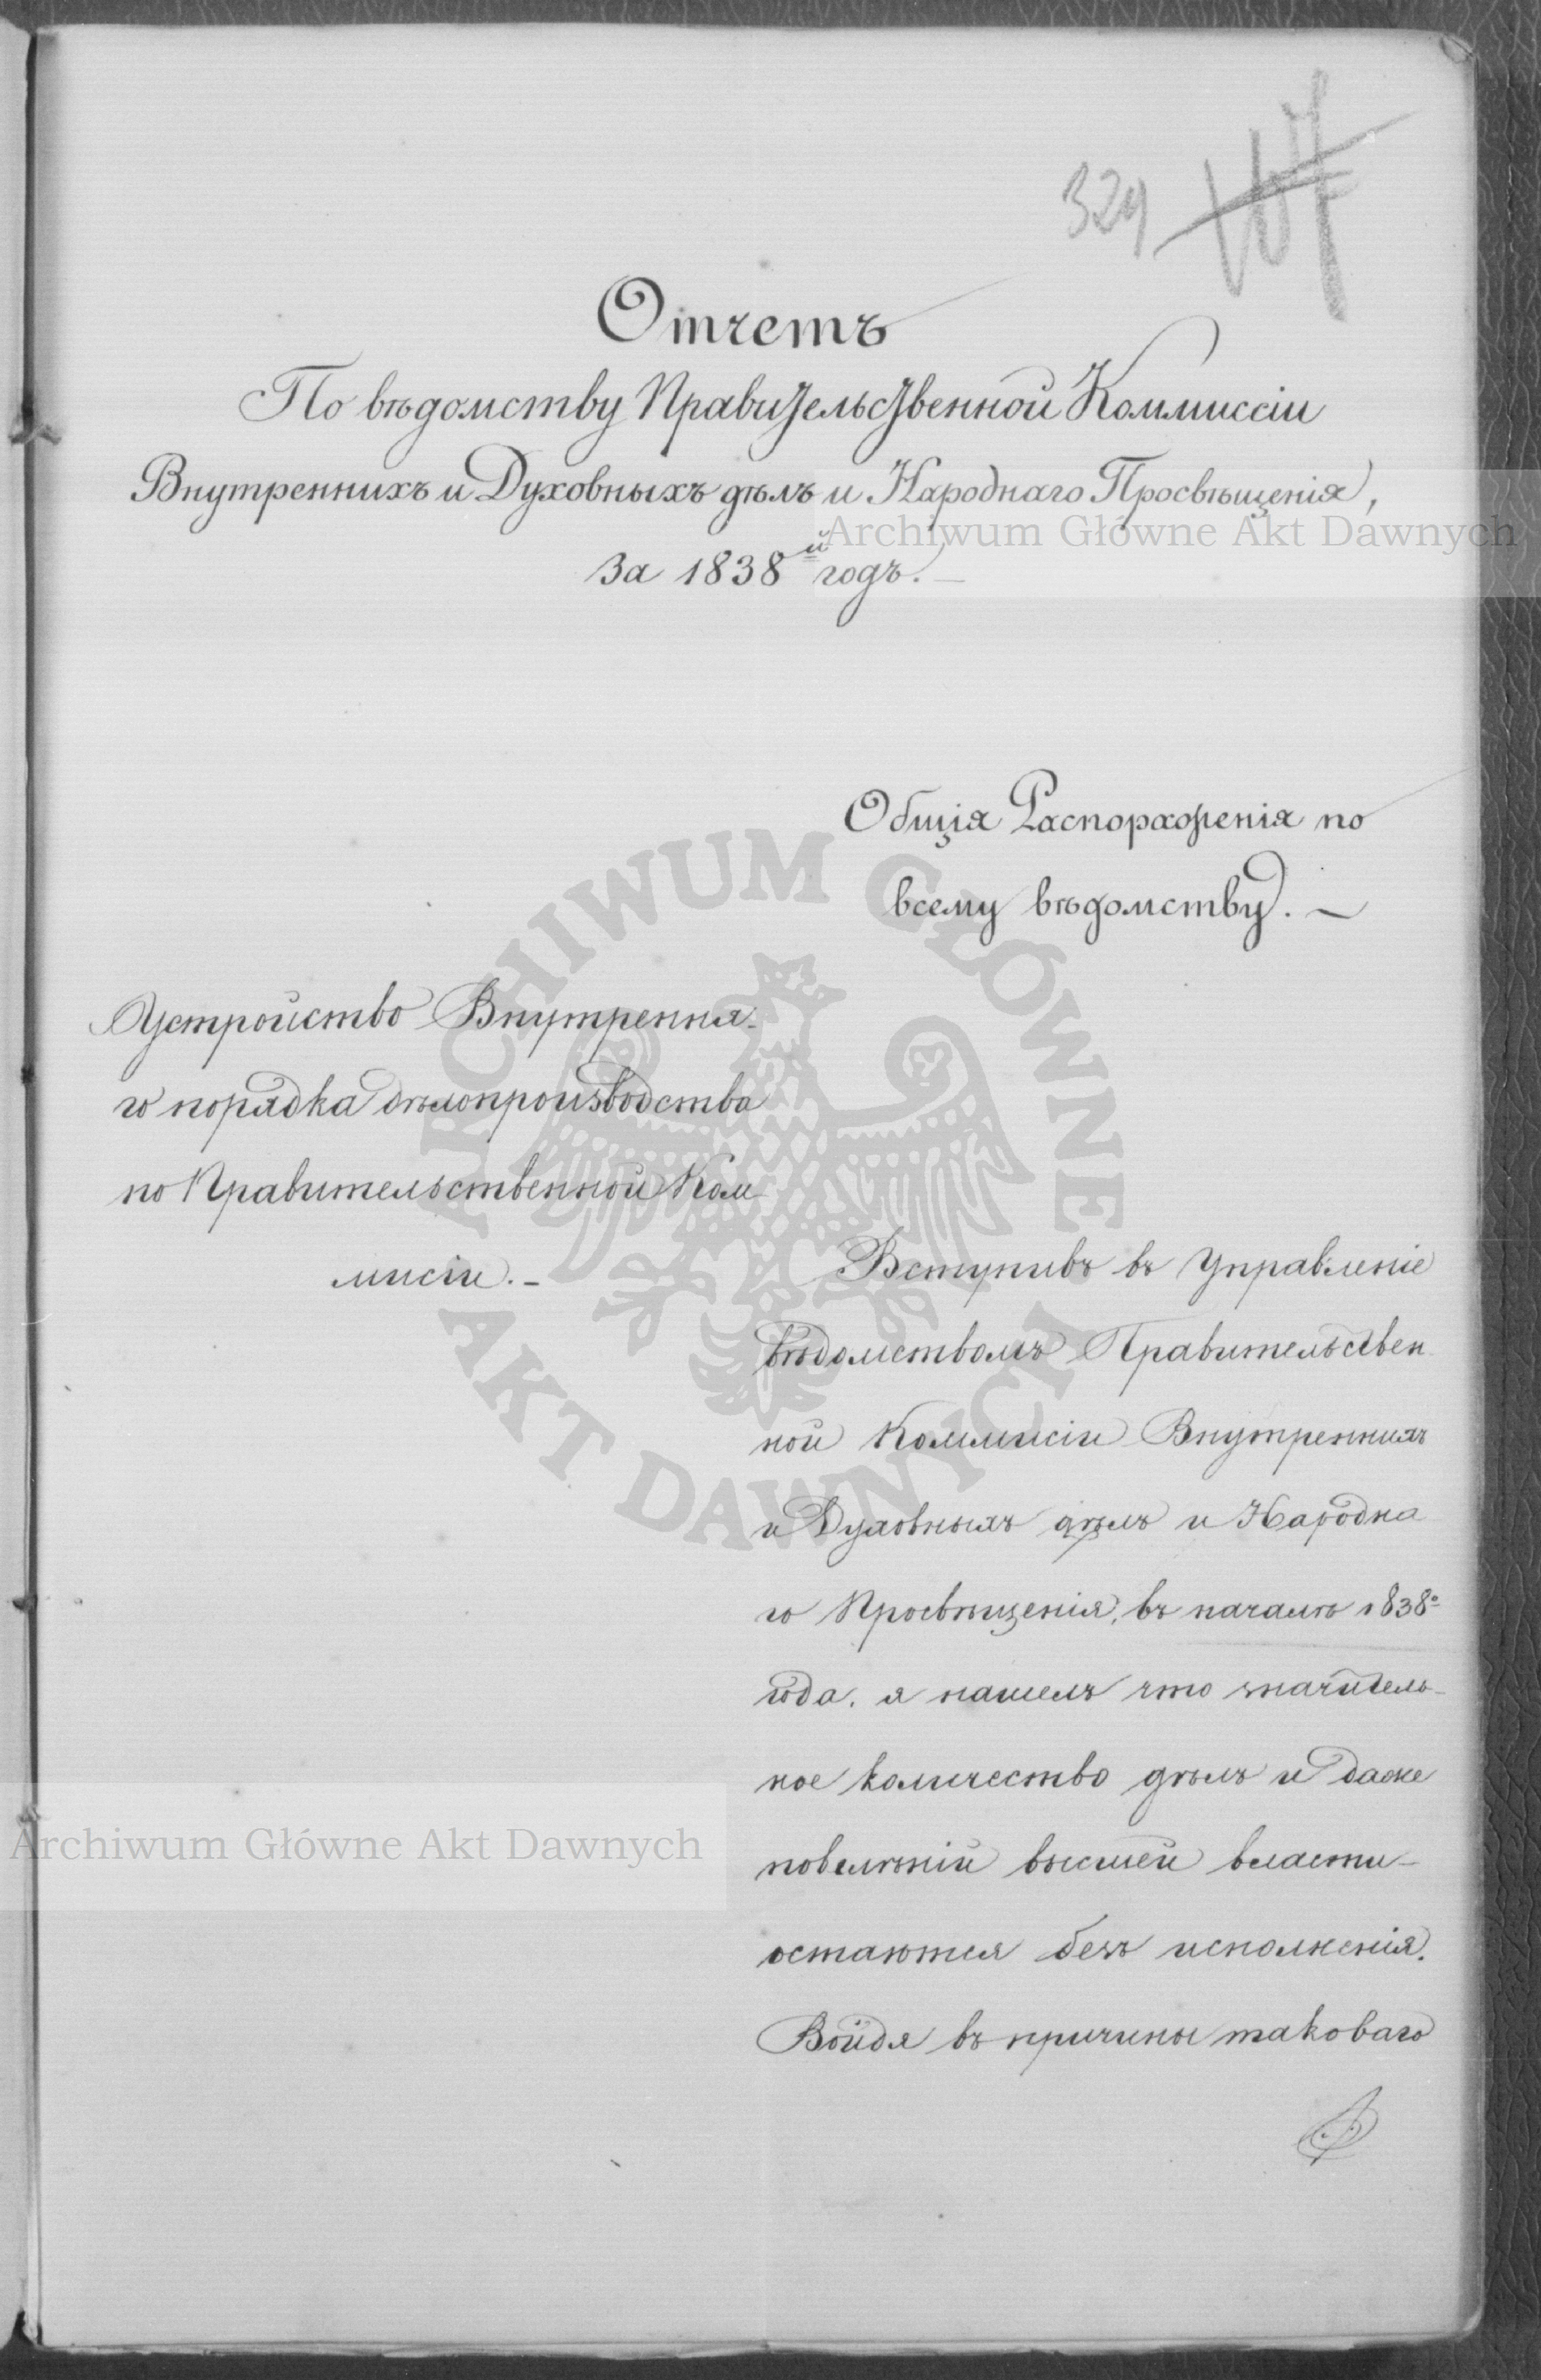 329
Отчетъ
По вѣдомству Правительственной Коммиссіи
Внутреннихъ и Духовныхъ дѣлъ и Народнаго Просвѣщенія,
За 1838й годъ. —
Archiwum Główne Akt Dawnych
Общія Распоряженія по
всему вѣдомству. —
ARCHIWUM GŁÓWNE
AKT DAWNYCH
Устройство Внутрення-
го порядка дѣлопроизводства
по Правительственной Ком
мисіи. -
Вступивъ въ Управленіе
вѣдомствомъ Правительствен
ной Коммисіи Внутреннихъ
и Духовныхъ дѣлъ и Народна
го Просвѣщенія, въ началѣ 1838го
года, я нашелъ что значитель-
ное количество дѣлъ и даже
повелѣній высшей власти-
остаются безъ исполненія.
Войдя въ причины таковаго
Archiwum Główne Akt Dawnych